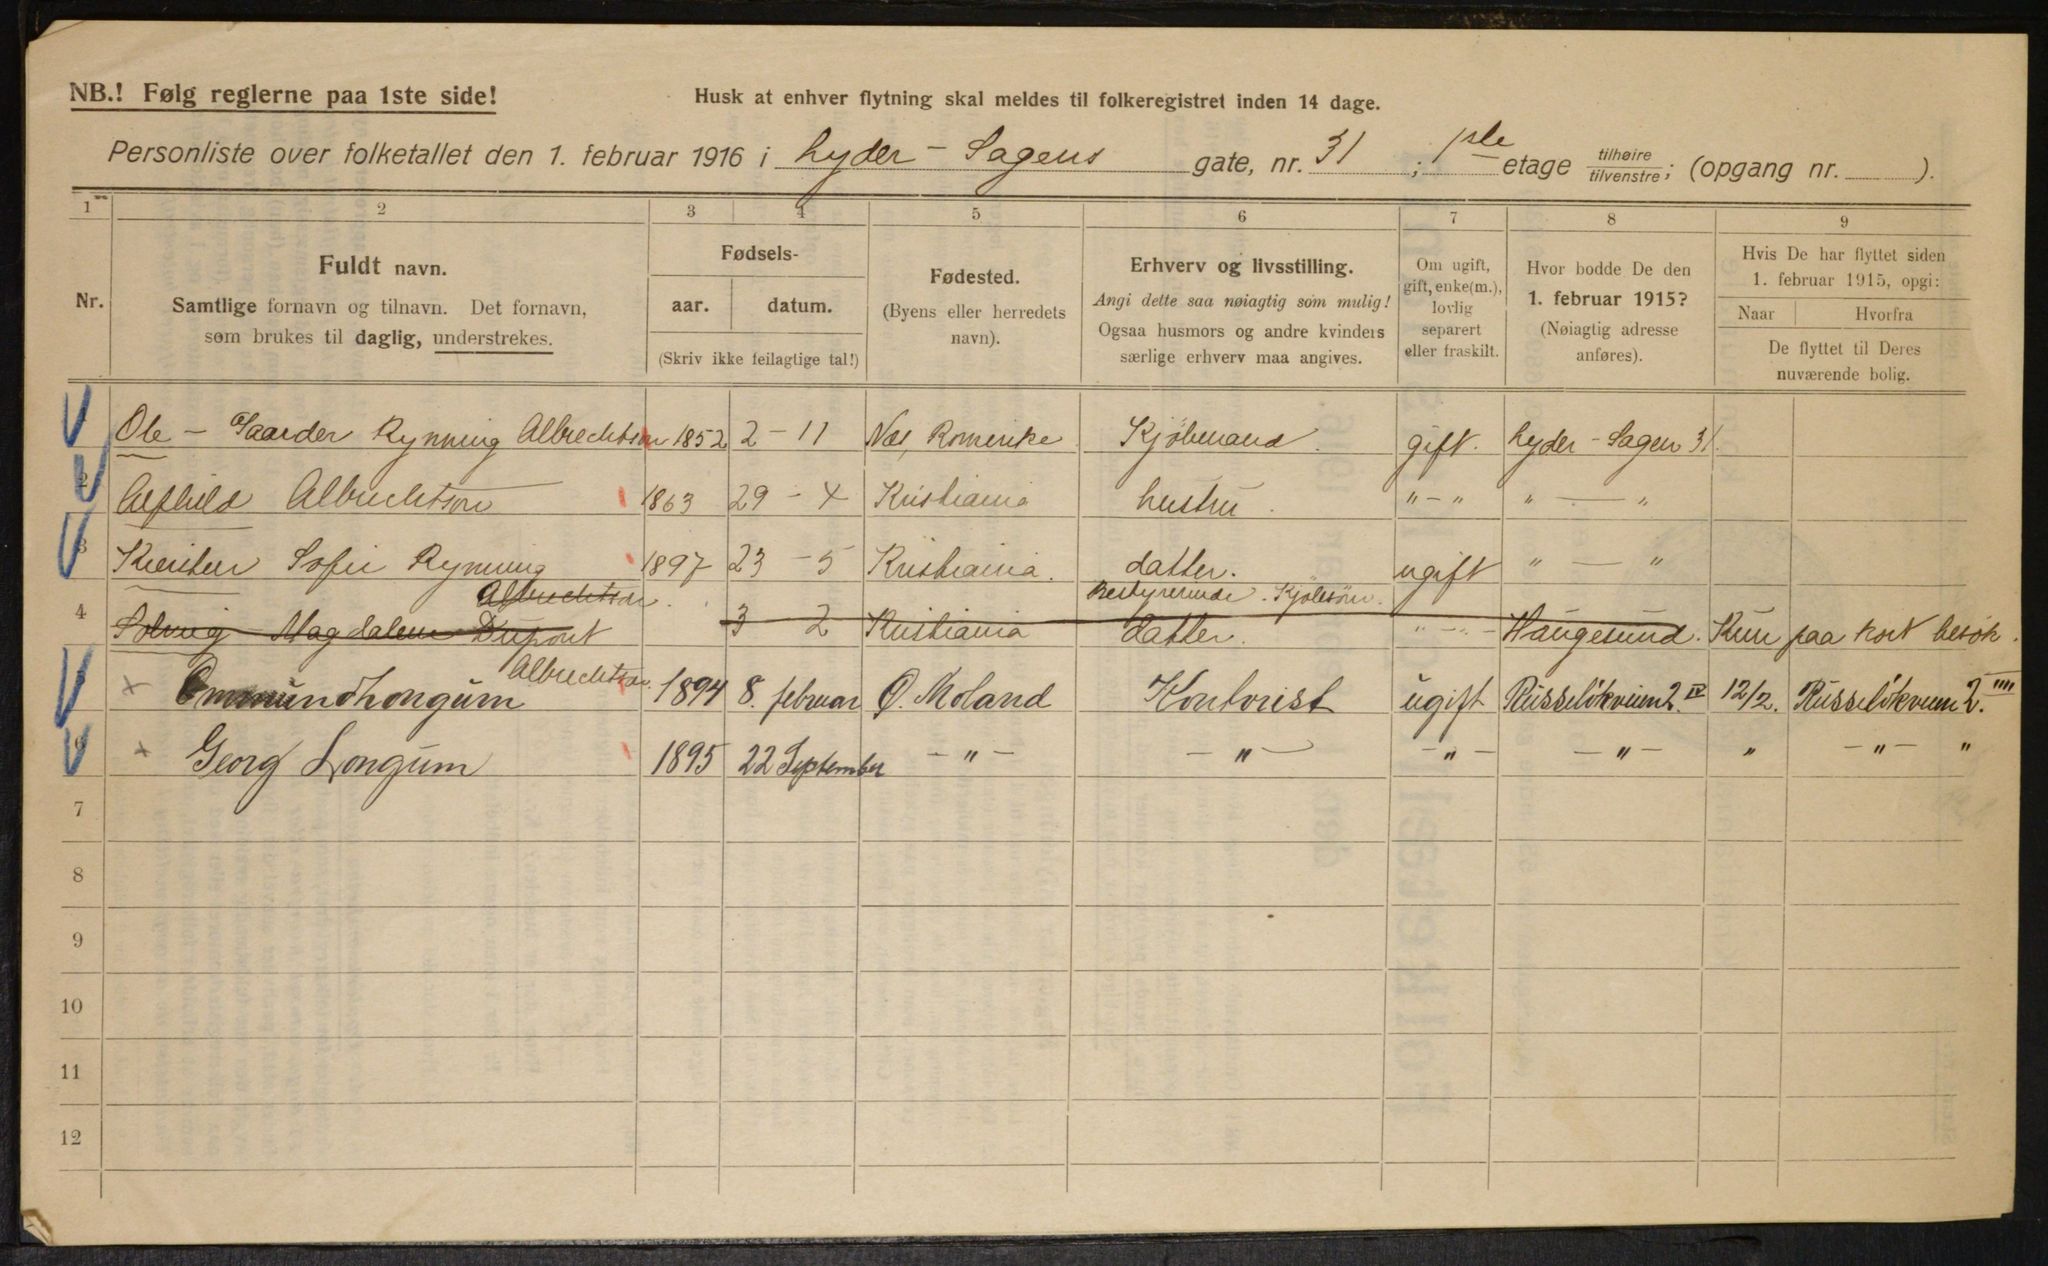 NB.! Følg reglerne paa 1ste side!
Husk at enhver flytning skal meldes til folkeregistret inden 14 dage.
Personliste over folketallet den 1. februar 1916 i Lyder - Sagens gate, nr. 31 ; 1ste etage tilhøire tilvenstre; (opgang nr. ).
1 2 3 4 5 6 7 8 9
Nr.
Fuldt navn.
Samtlige fornavn og tilnavn. Det fornavn,
som brukes til daglig, understrekes.
Fødsels-
aar. datum.
(Skriv ikke feilagtige tal!)
Fødested.
(Byens eller herredets
navn).
Erhverv og livsstilling.
Angi dette saa nøiagtig som mulig!
Ogsaa husmors og andre kvinders
særlige erhverv maa angives.
Om ugift,
gift, enke(m.),
lovlig
separert
eller fraskilt.
Hvor bodde De den
1. februar 1915?
(Nøiagtig adresse
anføres).
Hvis De har flyttet siden
1. februar 1915, opgi:
Naar Hvorfra
De flyttet til Deres
nuværende bolig.
1 Ole - Gaarder Rynning Albrechtson 1852 2 - 11 Nes, Romerike Kjøbmand. gift. Lyder - Sagen 31.
2 Alfhild Albrechtson 1863 29 - 4 Kristiania hustru. " - " " — "
3 Kirsten Sofie Rynning 1897 23 - 5 Kristiania. datter. ugift " — "
Albrechtson. Bestyrerinde.
4 Solveig Magdalene Dupont 3 2 Kristiania datter. " - " - Haugesund. Kun paa kort besøk.
Albrechtson.
5 Ommund Longum 1894 8. februar Ø. Moland Kontorist ugift Russeløkveien 2. IV 12/2. Russeløkveien 2. ""
6 Georg Longum 1895 22 September - " - - " - - " - - " - " - " - "
7
8
9
10
11
12